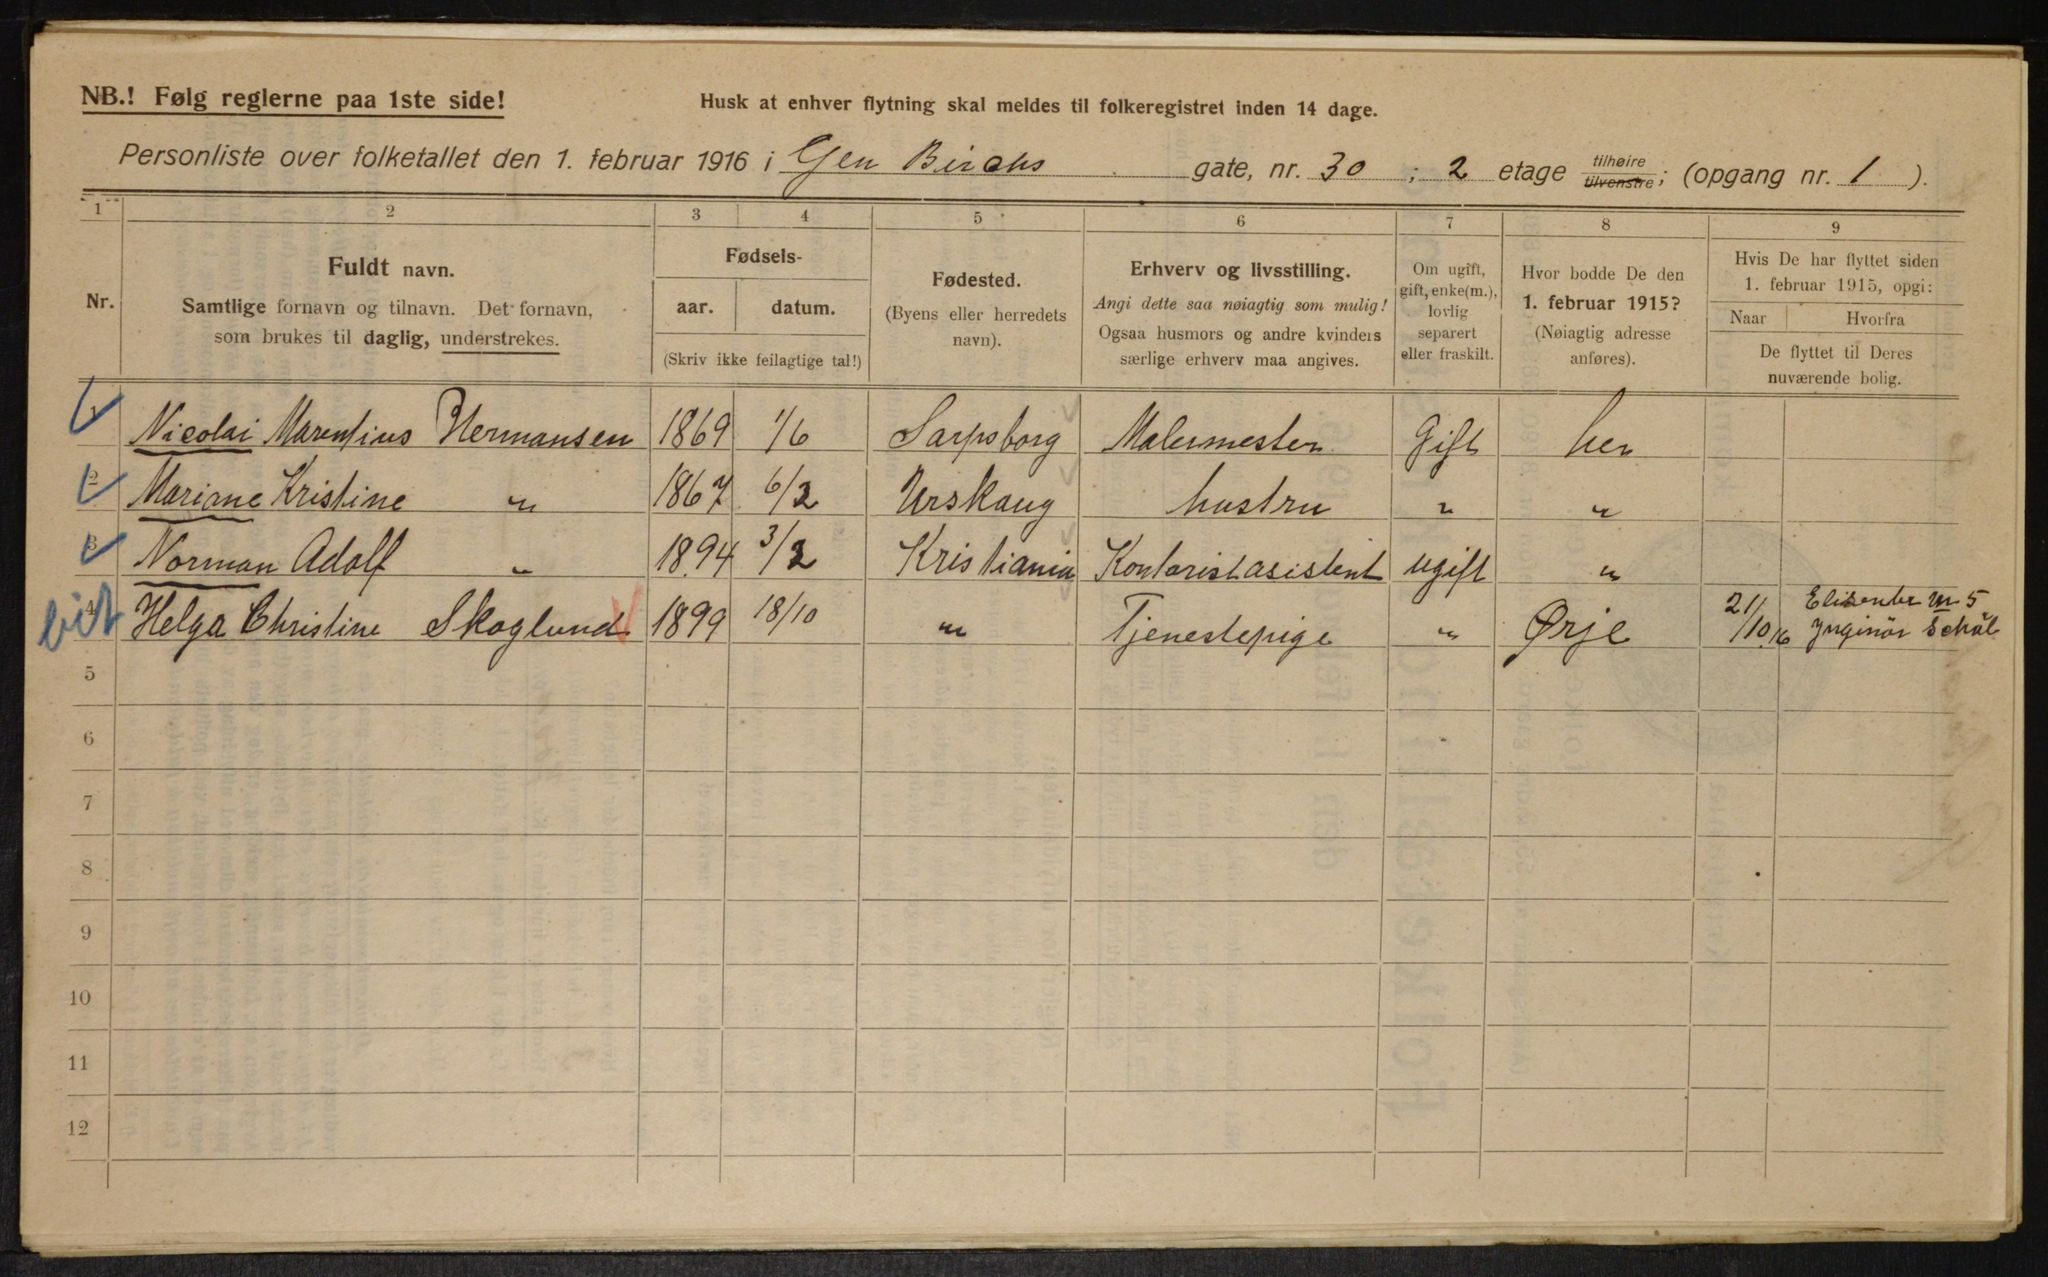 NB.! Følg reglerne paa 1ste side!
Husk at enhver flytning skal meldes til folkeregistret inden 14 dage.
Personliste over folketallet den 1. februar 1916 i Gen Birchs gate, nr. 30 ; 2 etage tilhøire tilvenstre; (opgang nr. 1 ).
1 2 3 4 5 6 7 8 9
Nr.
Fuldt navn.
Samtlige fornavn og tilnavn. Det fornavn,
som brukes til daglig, understrekes.
Fødsels-
aar. datum.
(Skriv ikke feilagtige tal!)
Fødested.
(Byens eller herredets
navn).
Erhverv og livsstilling.
Angi dette saa nøiagtig som mulig!
Ogsaa husmors og andre kvinders
særlige erhverv maa angives.
Om ugift,
gift, enke(m.),
lovlig
separert
eller fraskilt.
Hvor bodde De den
1. februar 1915?
(Nøiagtig adresse
anføres).
Hvis De har flyttet siden
1. februar 1915, opgi:
Naar Hvorfra
De flyttet til Deres
nuværende bolig.
1 Nicolai Marentius Hermansen 1869 1/6 Sarpsborg Malermester Gift her
2 Mariane Kristine " 1867 6/2 Urskaug hustru " "
3 Norman Adolf " 1894 3/2 Kristiania Kontoristasistent ugift "
4 Helga Christine Skoglund 1899 18/10 " Tjenestepige " Ørje 21/10 16 5
5
6
7
8
9
10
11
12